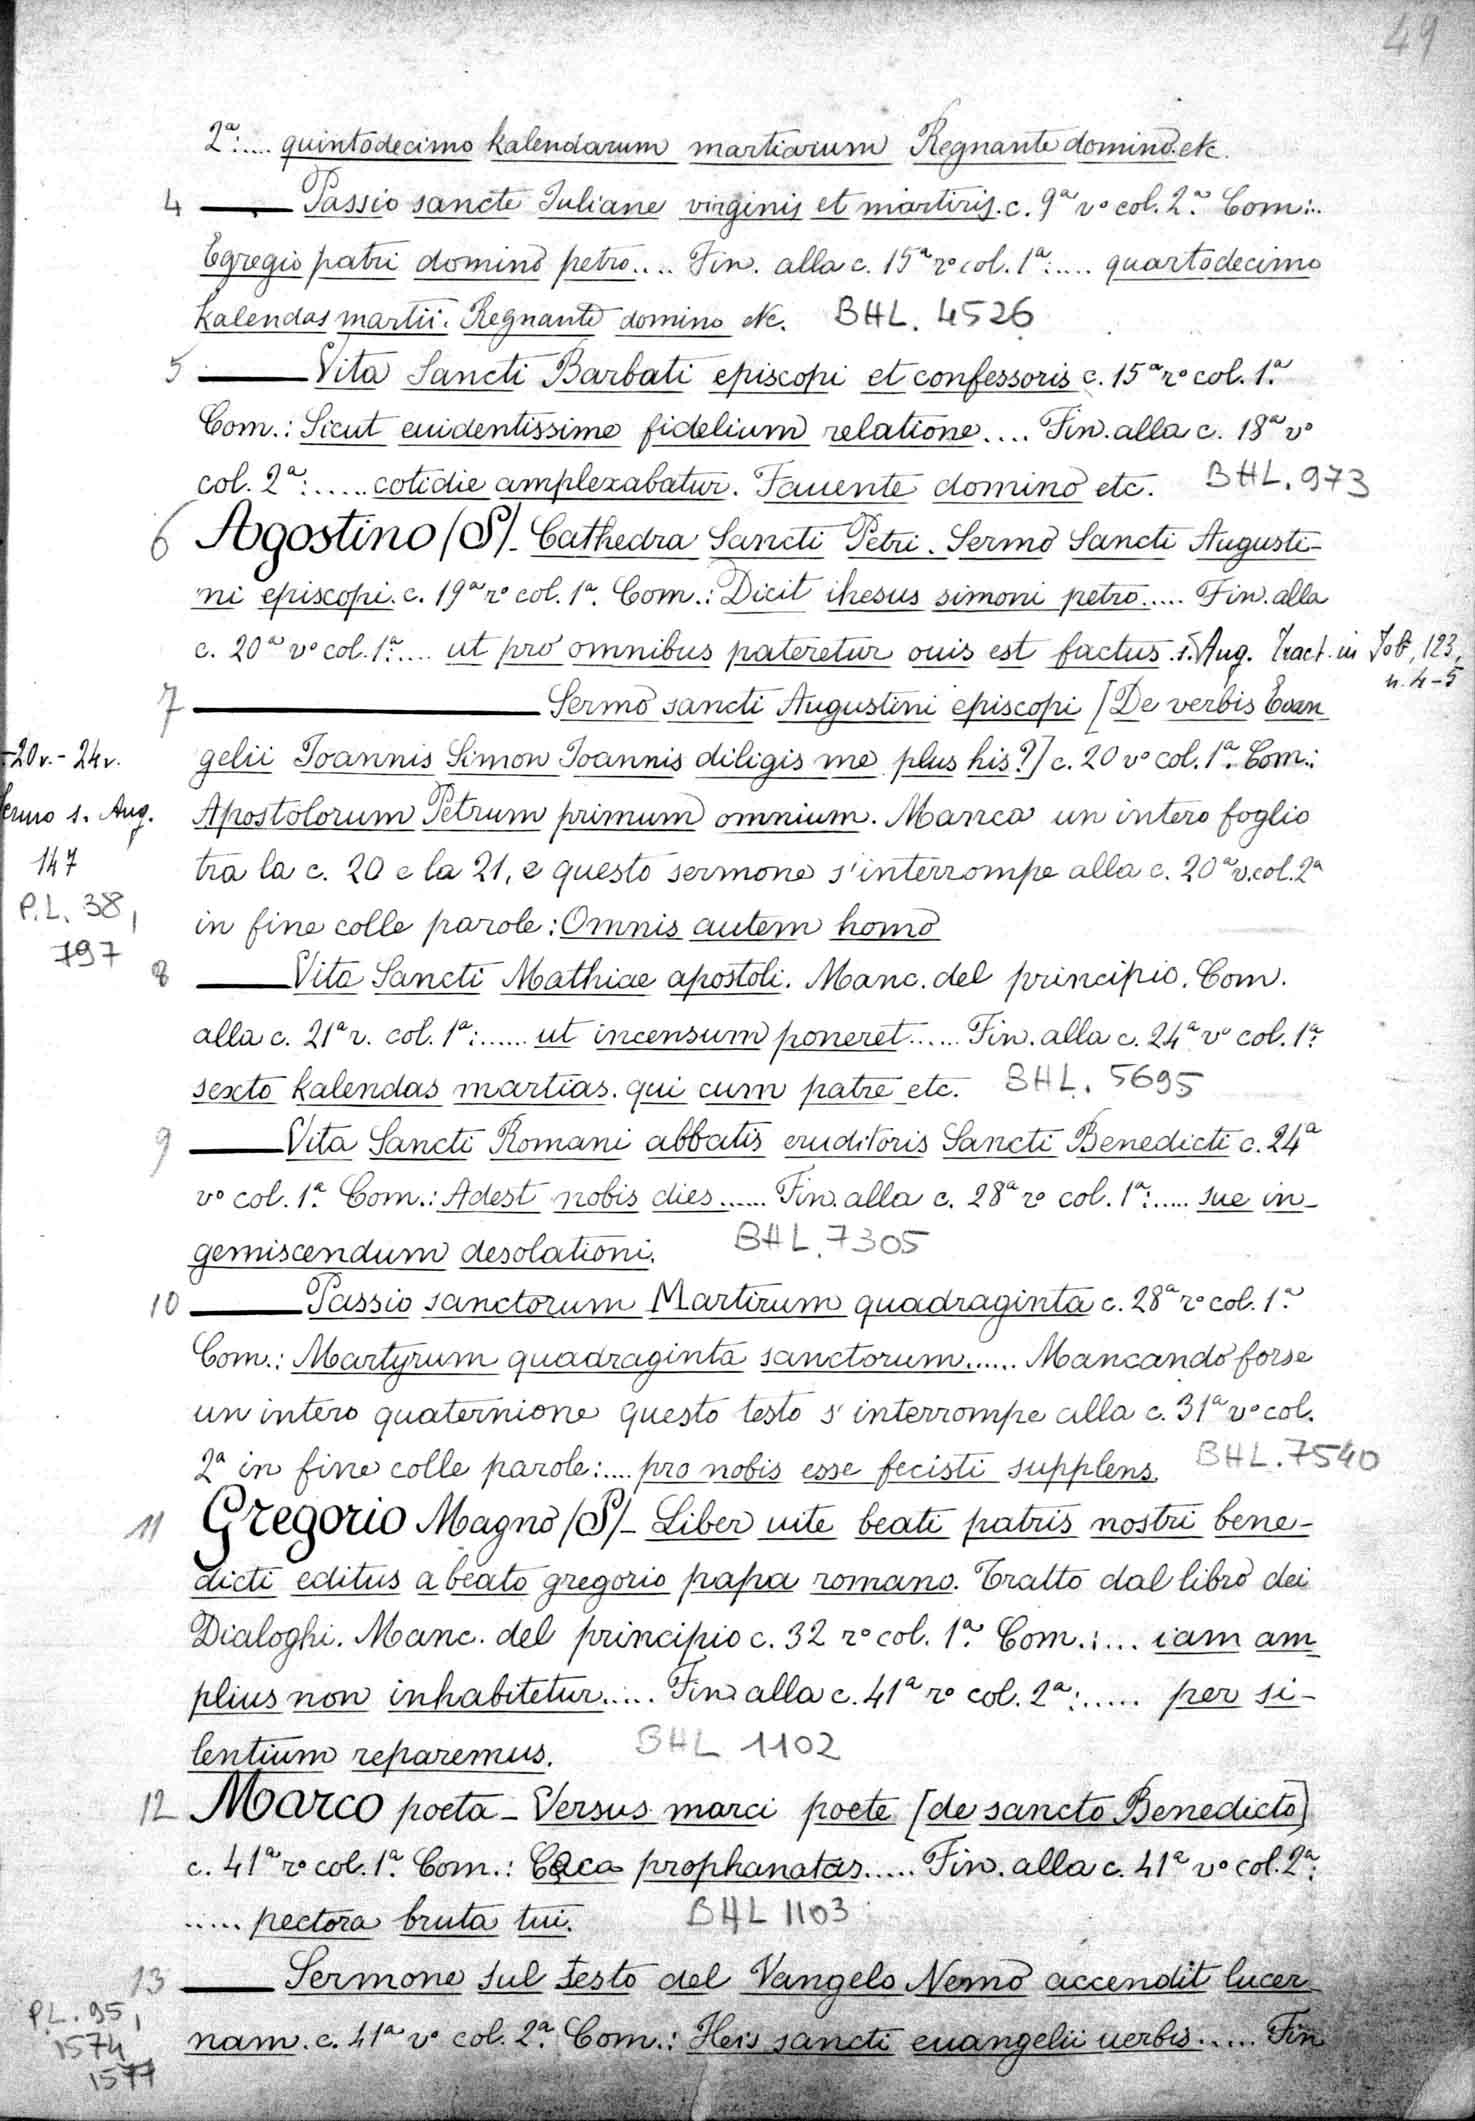 49
2ª:.... quintodecimo kalendarum martiarum Regnante domino etc.
4 —— Passio sancte Iuliane virginis et martiris. c. 9ª vº col. 2ª. Com:..
Egregio patri domino petro.... Fin. alla c. 15ª rº col. 1ª:.... quartodecimo
kalendas martii. Regnante domino etc. BHL. 4526
5 —— Vita Sancti Barbati episcopi et confessoris c. 15ª rº col. 1ª.
Com.: Sicut euidentissime fidelium relatione.... Fin. alla c. 18ª vº
col. 2ª:..... cotidie amplexabatur. Fauente domino etc. BHL. 973
6 Agostino (S) - Cathedra Sancti Petri. Sermo Sancti Augusti-
ni episcopi. c. 19ª rº col. 1ª. Com.: Dicit ihesus simoni petro..... Fin. alla
c. 20ª vº col. 1ª:.... ut pro omnibus pateretur ouis est factus. S. Aug. Tract. in Joh, 123,
n. 4-5
7 —— Sermo sancti Augustini episcopi [De verbis Evan
-20v.- 24v. gelii Ioannis Simon Ioannis diligis me plus his?] c. 20 vº col. 1ª. Com.:
Sermo s. Aug. Apostolorum Petrum primum omnium. Manca un intero foglio
147 tra la c. 20 e la 21, e questo sermone s'interrompe alla c. 20ª v. col. 2ª
P.L. 38, in fine colle parole: Omnis autem homo
797
8 —— Vita Sancti Mathiae apostoli. Manc. del principio. Com.
alla c. 21ª r. col. 1ª:...... ut incensum poneret...... Fin. alla c. 24ª vº col. 1ª:
sexto kalendas martias. qui cum patre etc. BHL. 5695
9 —— Vita Sancti Romani abbatis eruditoris Sancti Benedicti c. 24ª
vº col. 1ª. Com.: Adest nobis dies...... Fin. alla c. 28ª rº col. 1ª:..... sue in-
gemiscendum desolationi. BHL. 7305
10 —— Passio sanctorum Martirum quadraginta c. 28ª rº col. 1ª.
Com.: Martyrum quadraginta sanctorum...... Mancando forse
un intero quaternione questo testo s'interrompe alla c. 31ª vº col.
2ª in fine colle parole:.... pro nobis esse fecisti supplens. BHL. 7540
11 Gregorio Magno (S) - Liber uite beati patris nostri bene-
dicti editus a beato gregorio papa romano. Tratto dal libro dei
Dialoghi. Manc. del principio c. 32 rº col. 1ª. Com.:... iam am
plius non inhabitetur..... Fin. alla c. 41ª rº col. 2ª:..... per si-
lentium reparemus. BHL 1102
12 Marco poeta - Versus marci poete [de sancto Benedicto]
c. 41ª rº col. 1ª. Com.: Ceca prophanatas..... Fin. alla c. 41ª vº col. 2ª:
..... pectora bruta tui. BHL 1103
13 —— Sermone sul testo del Vangelo Nemo accendit lucer
P.L. 95, nam. c. 41ª vº col. 2ª. Com.: Heis sancti euangelii uerbis..... Fin
1574
1577